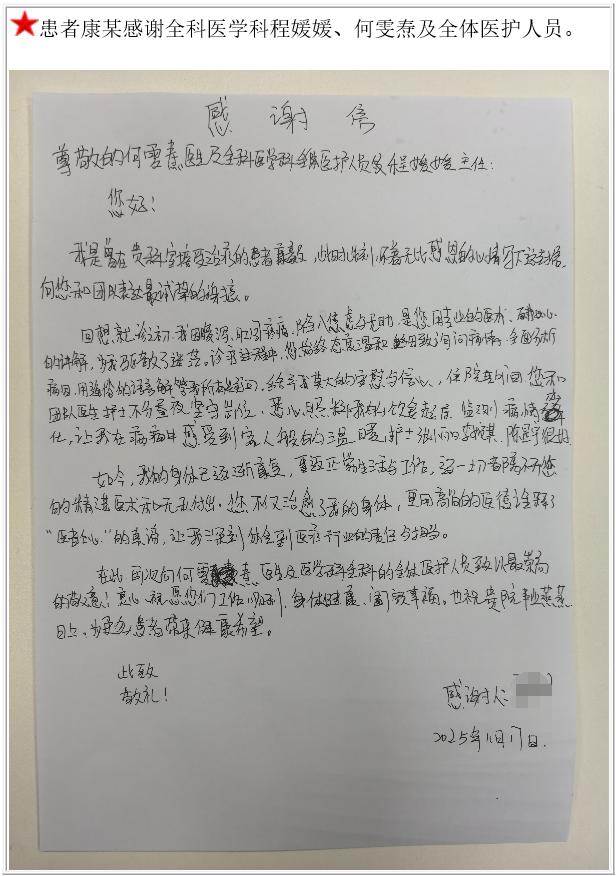 患者康某感谢全科医学科程媛媛、何雯焘及全体医护人员。
感谢信
尊敬的何雯焘医生及全科医学科全体医护人员及程媛媛主任：
您好！
我是曾在贵科室接受治疗的患者康毅，此时此刻，怀着无比感恩的心情写下这封信，
向您和团队表达最诚挚的谢意。
回想就诊之初，我因疼痛，陷入焦虑与无助，是您用专业的医术、耐心
的讲解，为我驱散了迷茫。诊疗过程中，您始终态度温和，细致询问病情，全面分析
病因，用通俗的语言解答我所有疑问，给予我莫大的安慰与信心，住院期间您和
团队医生护士不分昼夜坚守岗位，悉心照料我的饮食起居，监测病情变
化，让我在病痛中感受到家人般的温暖，护士
如今，我的身体已逐渐康复，重返正常生活与工作，这一切都离不开您
的精湛医术和无私付出。您不仅治愈了我的身体，更用高尚的医德诠释了
“医者仁心”的真谛，让我深刻体会到医疗行业的责任与担当。
在此再次向何雯焘医生及医学科全科的全体医护人员致以最崇高
的敬意！衷心祝愿您们工作顺利，身体健康，阖家幸福。也祝贵院事业蒸蒸
日上，为更多患者带来健康希望。
此致
敬礼！
感谢人：
2025年11月17日.